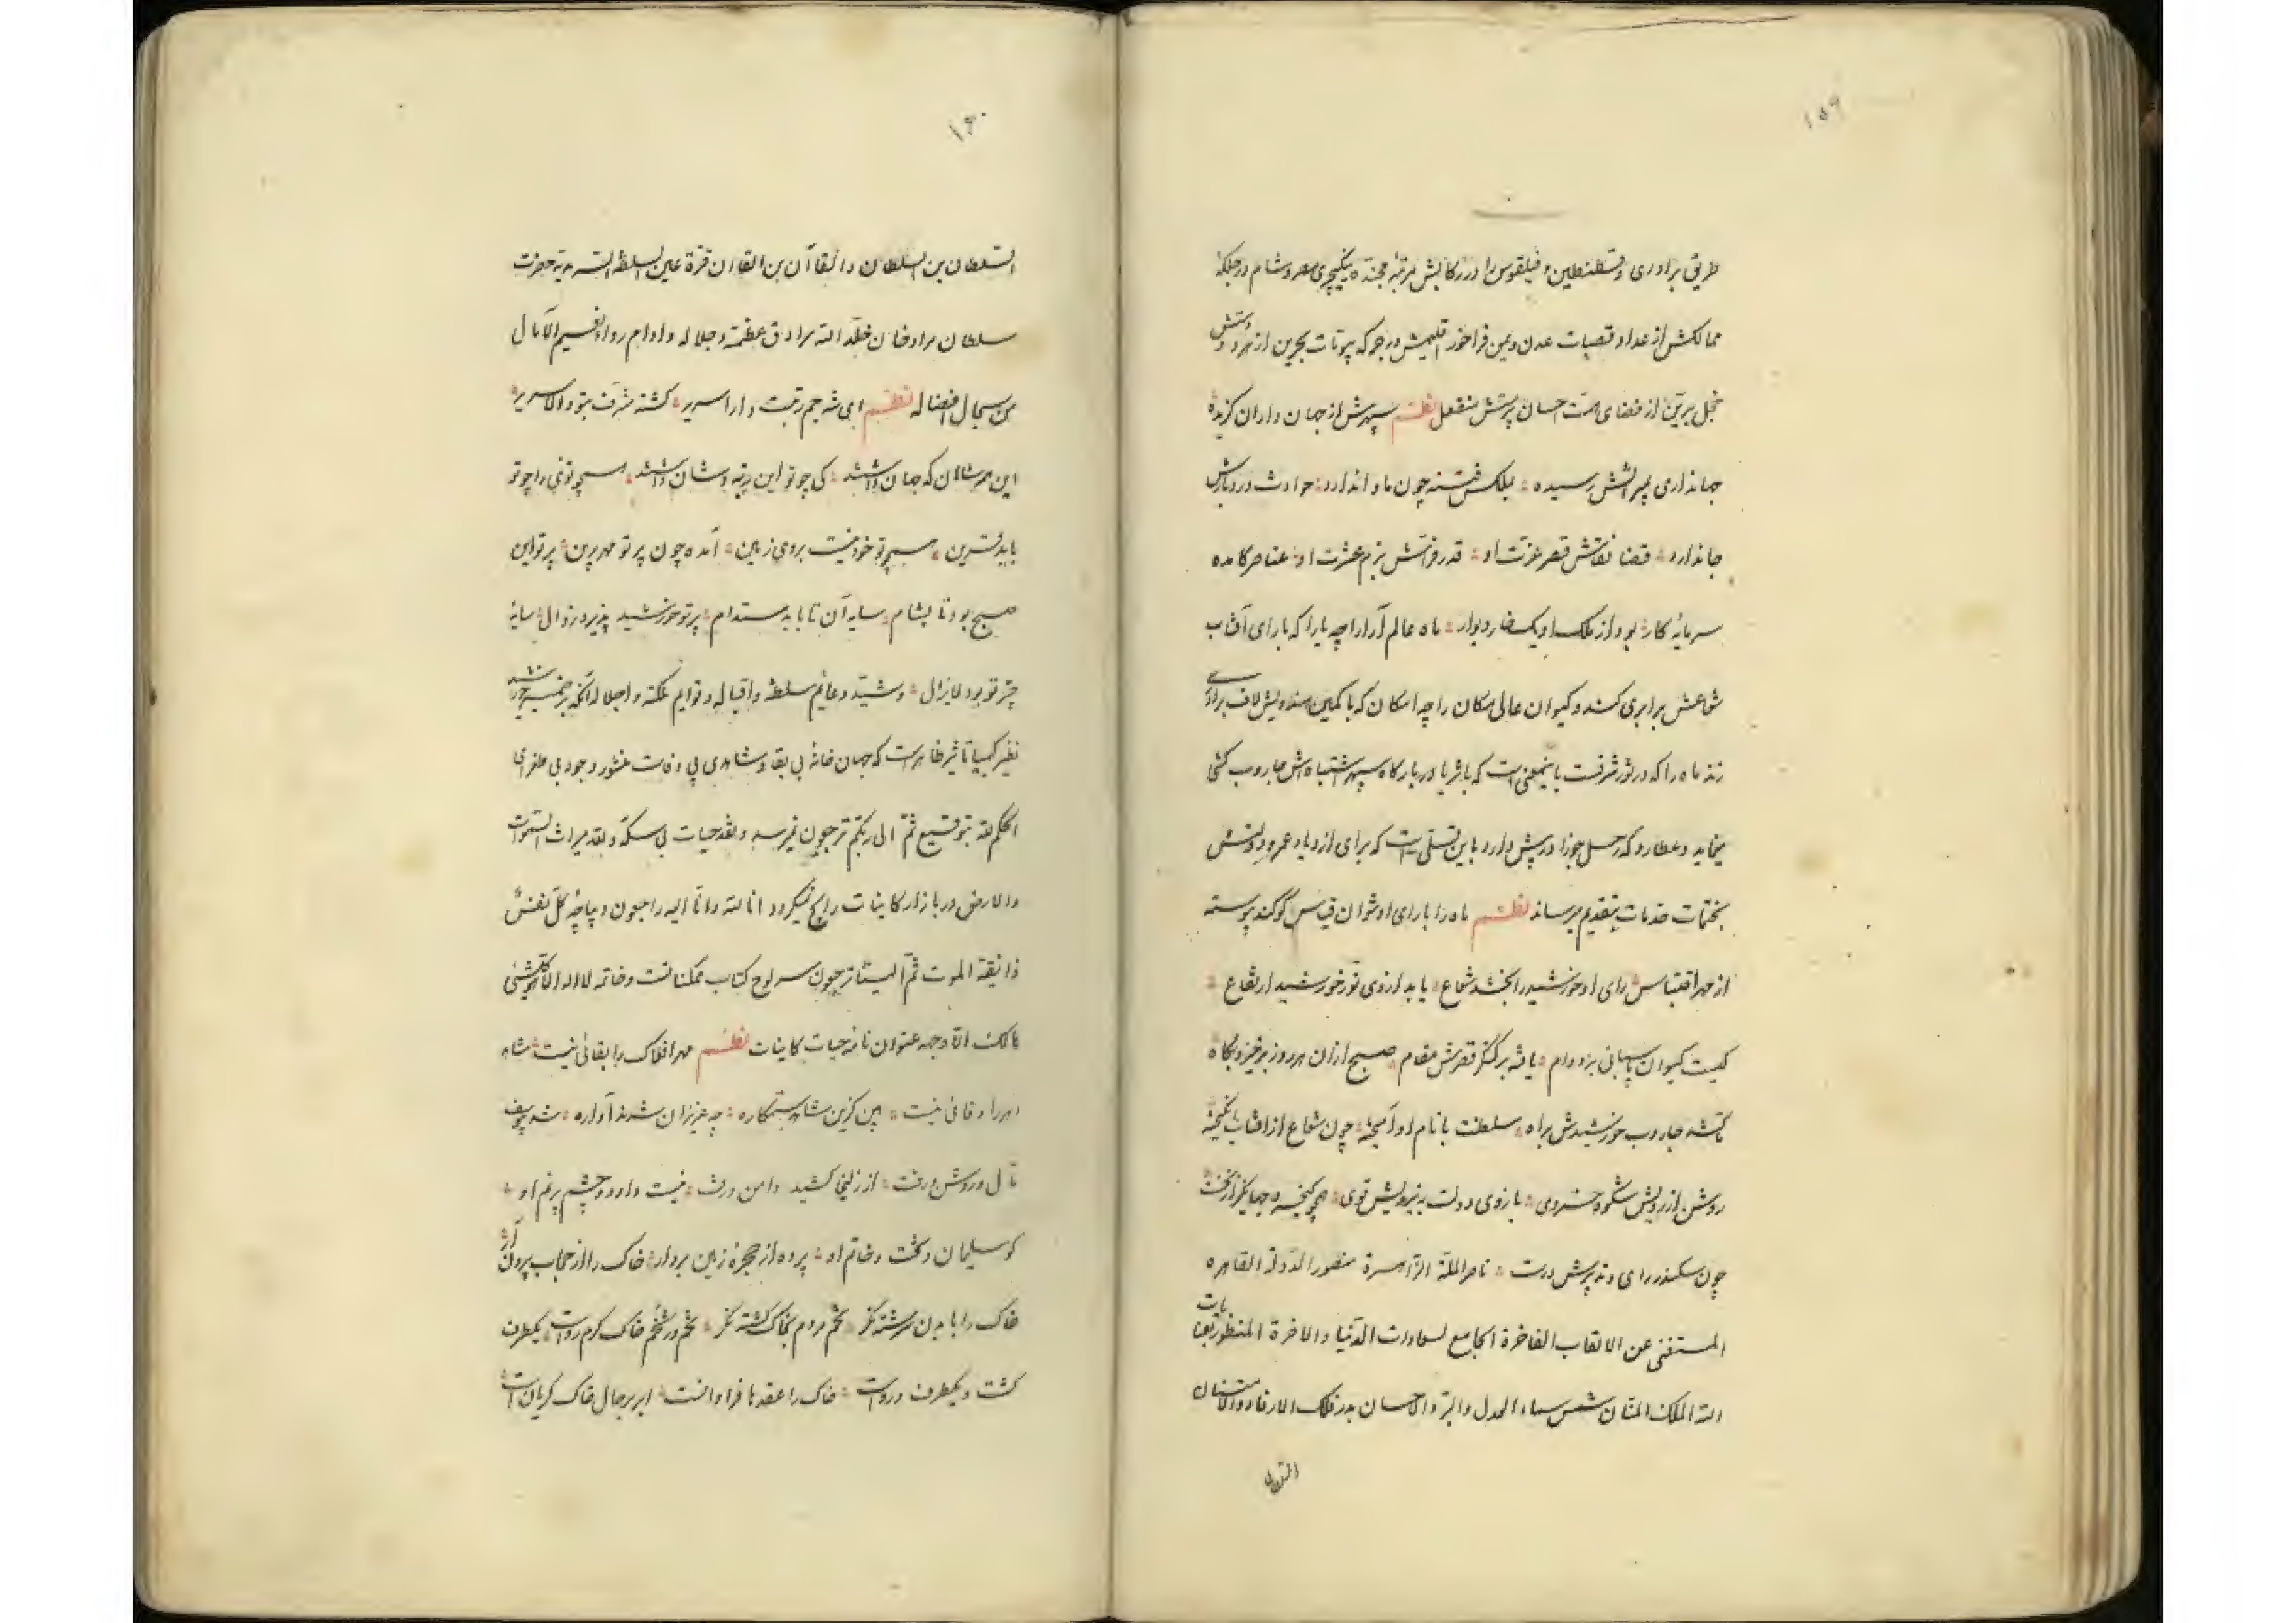 ۱۵۹
طریق برادری و قسطنطین و فیلقوس را در رکابش مرتبهٔ ینکیچری مصر و شام در جنکه
ممالکش از عداد قصبات عدن و یمن فراخور اقلیمش در جوکه بیوتات بحرین از هر دو دستش
خجل بر تن از فضای همت احسان پرستش منفعل نظم سپهرش از جهان داران کزیده
جهانداری بمیراثش رسیده ملکش فتنه چون ماوا ندارد حوادث در دیارش
جا ندارد قضا نقاش قصر عزت او قدر فراش بزم عشرت او عناصر کامده
سرمایهٔ کار بود از ملک او یک چار دیوار ماه عالم آرا را چه یارا که با رای آفتاب
شعاعش برابری کند و کیوان عالی مکان را چه امکان که با کمین هندویش لاف برادری
زند ماه را که در ثور شرفست باینمعنی است که با ثریا در بارکاه سپهر اشتباهش جاروب کشی
مینماید و عطارد که رحل جوزا در پیش دارد باین تسلی است که برای ازدیاد عمر و دولتش
بختمات خدمات بتقدیم میرساند نظم ماه را با رای او نتوان قیاس کو کند پیوسته
از مهر اقتباس رای او خورشید را بخشد شعاع یابد از وی نور خورشید ارتفاع
کیست کیوان پاسبانی بر دوام یافته بر کنکر قصرش مقام صبح از ان هر روز برخیزد پکاه
تا کشد جاروب خورشیدش براه سلطنت با نام او آمیخته چون شعاع از افتاب انکیخته
روشن از رویش شکوه خسروی بازوی دولت به نیرویش قوی همچو کیخسرو جهانکیر از نخست
چون سکندر رای و تدبیرش درست ناصر الملة الزاهرة منصور الدولة القاهره
المستغنی عن الالقاب الفاخرة الجامع لسعادات الدنیا والاخرة المنظور بعنایات
الله الملک المنان شمس سماء العدل والبر والاحسان بدر فلک الارفاد والامتنان
السلطان
۱۶۰
السلطان بن السلطان والقاآن بن القاان قرة عین السلطنة السرمدیة حضرت
سلطان مراد خان خلد الله سرادق عظمته وجلاله وادام رواء نسیم الآمال
من سجال افضاله نظم ای شه جم رتبت دارا سریر کشته مشرف بتو والا سریر
این همه شاهان که جهان داشتند کی چو تو این رتبه و شان داشتند همچو تویی را چو تو
باید قرین همچو تو خود نیست بروی زمین آمده چون پرتو مهر برین پرتو این
صبح بود تا بشام سایه آن تا بابد مستدام پرتو خورشید پذیرد زوال سایهٔ
چتر تو بود لایزال و شید دعائم سلطنته واقباله وقوایم مکنته واجلاله آنکه بر ضمیر خورشید
نظیر کیمیا تاثیر ظاهر است که جهان خانهٔ بی بقا و شاهدی بی وفاست منشور وجود بی طغرای
الحکم لله بتوقیع ثم الی ربکم ترجعون نمیرسد و نقد حیات بی سکهٔ ولله میراث السموات
والارض در بازار کاینات رایج نمیکردد انا لله وانا الیه راجعون دیباچهٔ کل نفس
ذائقة الموت ثم الینا ترجعون سرلوح کتاب ممکناتست و خاتمه لا اله الا هو کل شیئ
هالک الا وجهه عنوان نامهٔ حیات کاینات نظم مهر افلاک را بقائی نیست شاهد
دهر را وفائی نیست بین کزین شاهد ستمکاره چه عزیزان شدند آواره شد یوسف
تا ل در وش رفت از زلیخا کشید دامن رفت نیست دارد دو چشم پر نم او
کو سلیمان و تخت و خاتم او پرده از حجرهٔ زمین بردار خاک را از حجاب بیرون آر
خاک را با بدن سرشته نکر تخم مردم بخاک کشته نکر تخم در تخم خاک کرم رواست یکطرف
کشت و یکطرف درواست خاک را عقدها فراوانست ابر بر حال خاک کریانست